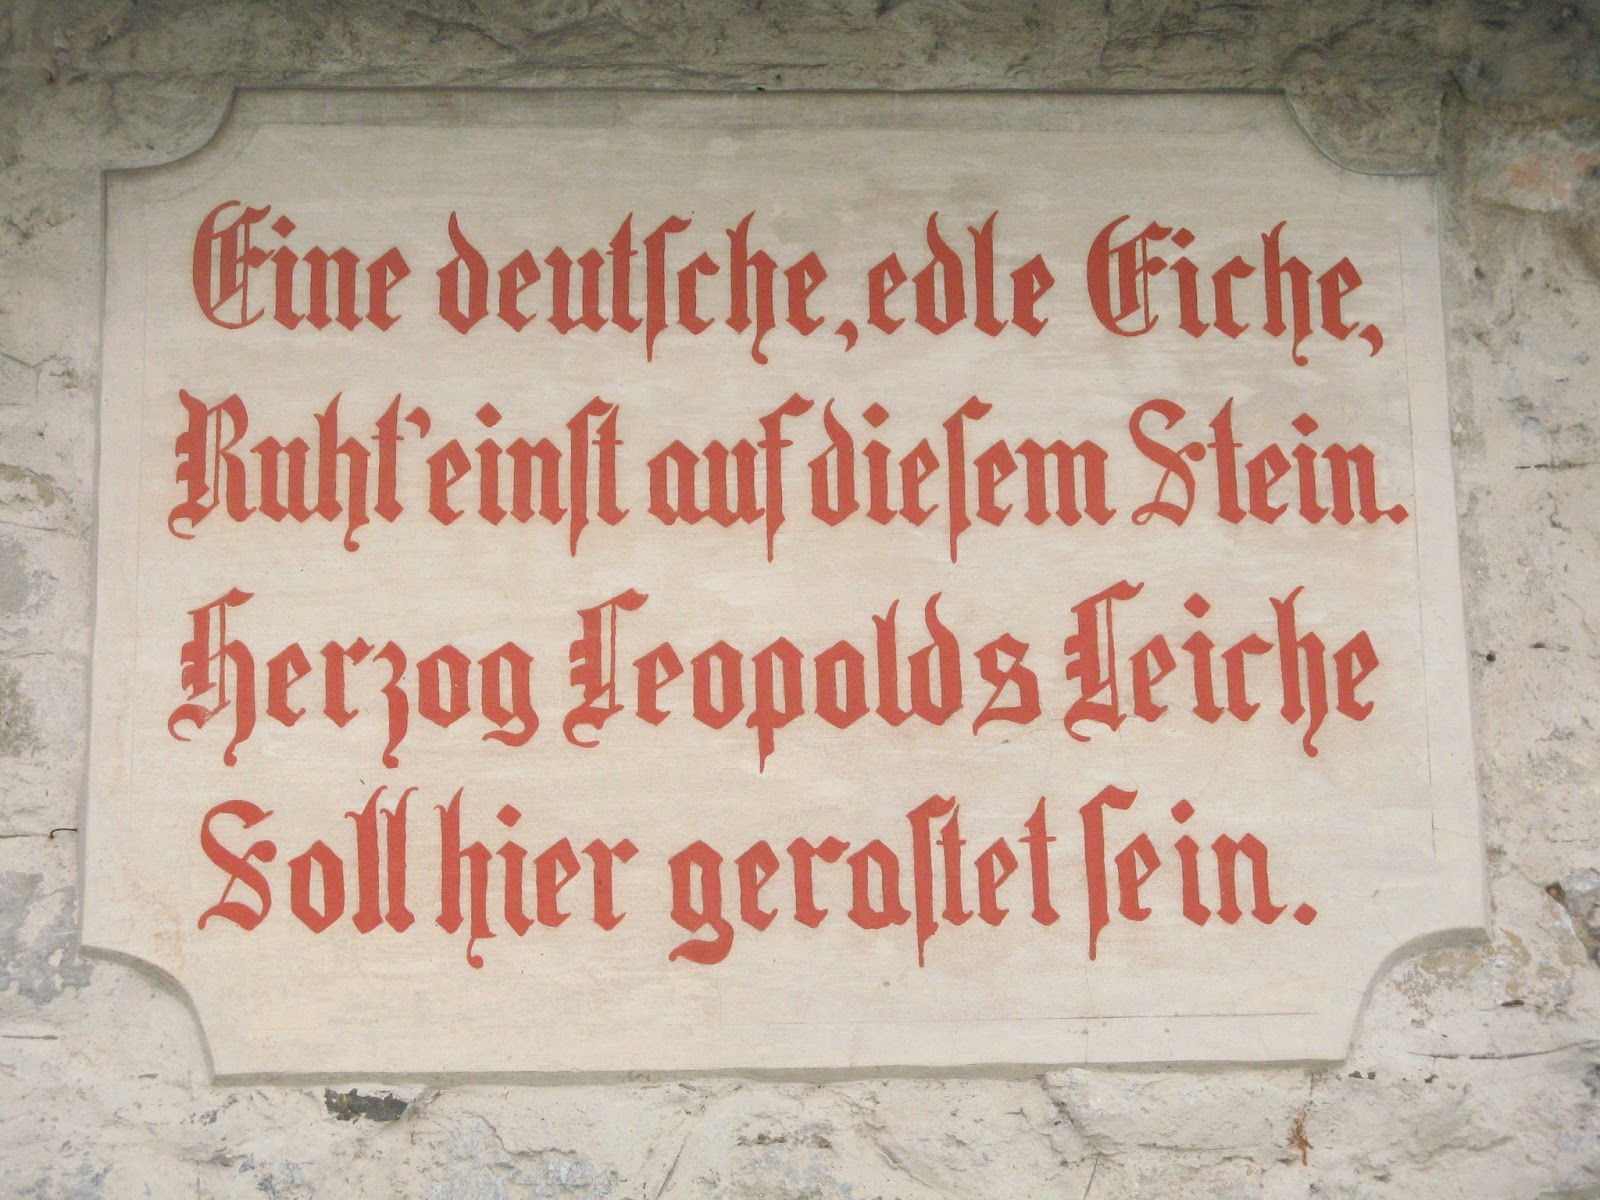 Eine deutsche, edle Eiche,
Ruht' einst auf diesem Stein.
Herzog Leopolds Leiche
Soll hier gerastet sein.